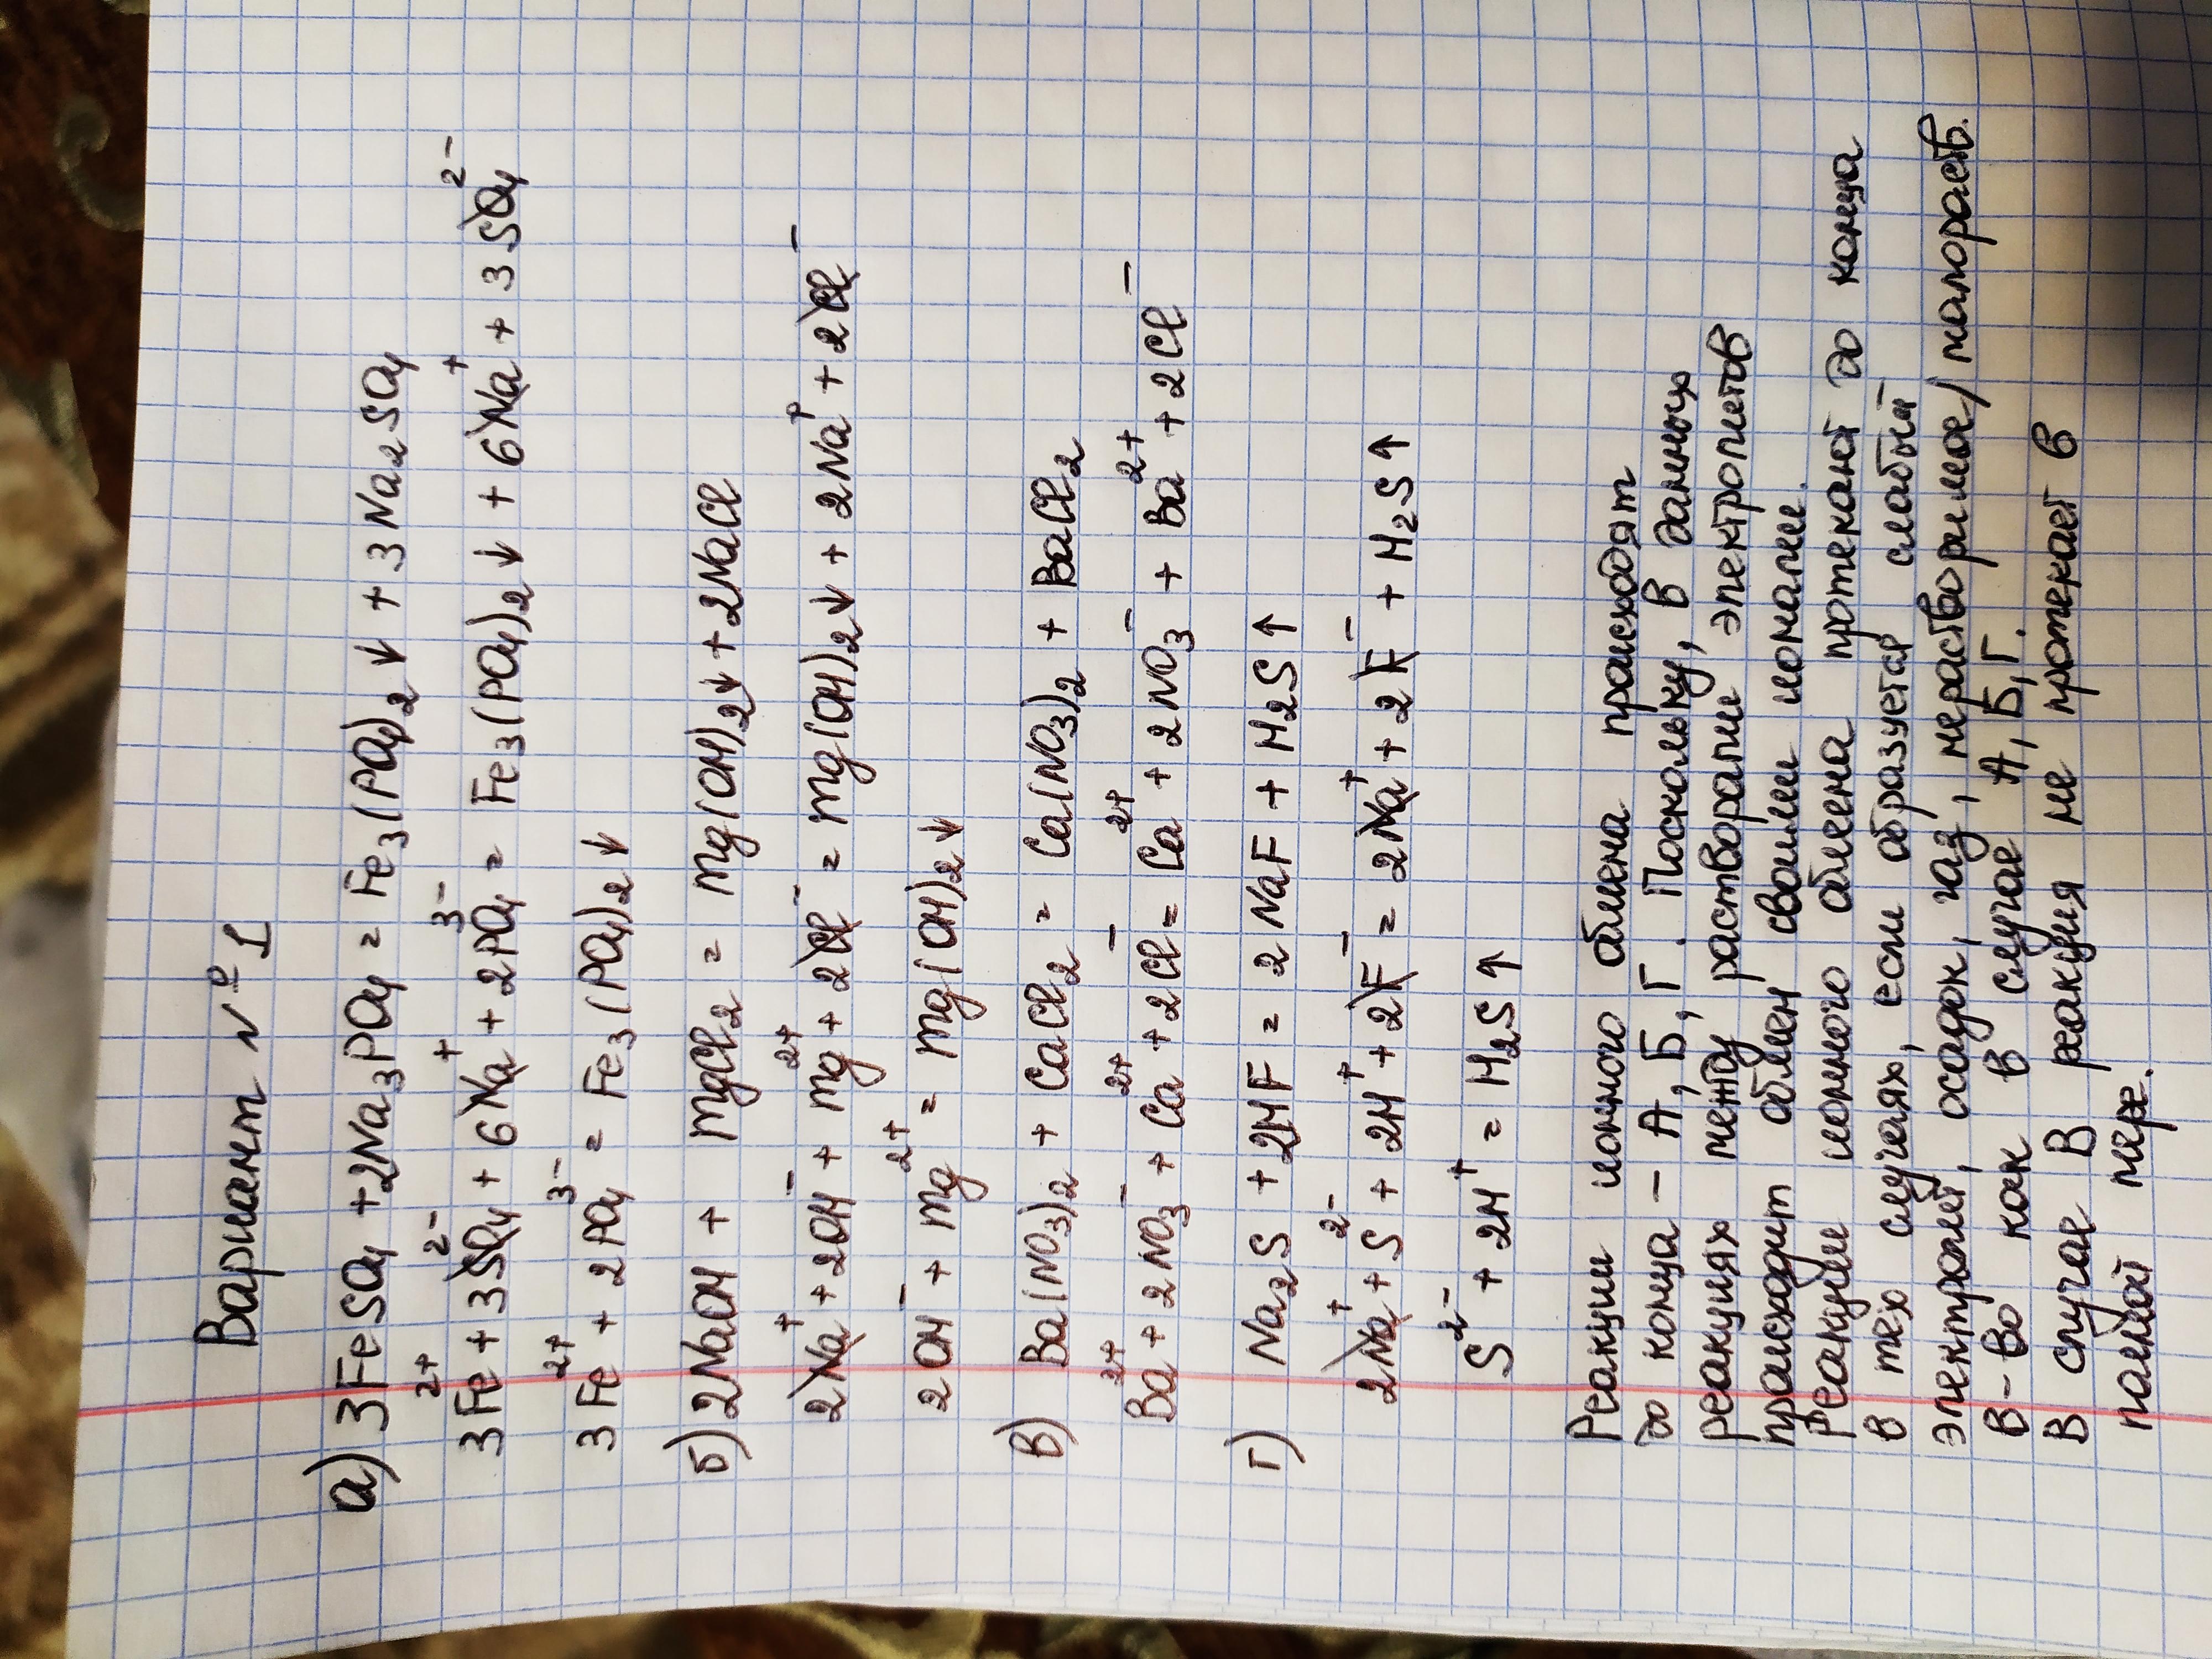 Вариант №1
а) 3FeSO₄ + 2Na₃PO₄ = Fe₃(PO₄)₂↓ + 3Na₂SO₄
3Fe²⁺ + 3SO₄²⁻ + 6Na⁺ + 2PO₄³⁻ = Fe₃(PO₄)₂↓ + 6Na⁺ + 3SO₄²⁻
3Fe²⁺ + 2PO₄³⁻ = Fe₃(PO₄)₂↓
б) 2NaOH + MgCl₂ = Mg(OH)₂↓ + 2NaCl
2Na⁺ + 2OH⁻ + Mg²⁺ + 2Cl⁻ = Mg(OH)₂↓ + 2Na⁺ + 2Cl⁻
2OH⁻ + Mg²⁺ = Mg(OH)₂↓
в) Ba(NO₃)₂ + CaCl₂ = Ca(NO₃)₂ + BaCl₂
Ba²⁺ + 2NO₃⁻ + Ca²⁺ + 2Cl⁻ = Ca²⁺ + 2NO₃⁻ + Ba²⁺ + 2Cl⁻
г) Na₂S + 2HF = 2NaF + H₂S↑
2Na⁺ + S²⁻ + 2H⁺ + 2F⁻ = 2Na⁺ + 2F⁻ + H₂S↑
S²⁻ + 2H⁺ = H₂S↑
Реакции ионного обмена происходят
до конца - А, Б, Г. Поскольку, в данных
реакциях между растворами электролитов
происходит обмен своими ионами.
Реакции ионного обмена протекают до конца
в тех случаях, если образуется слабый
электролит, осадок, газ, нерастворимое/малораств.
в-во как в случае А, Б, Г.
В случае В реакция не протекает в
полной мере.